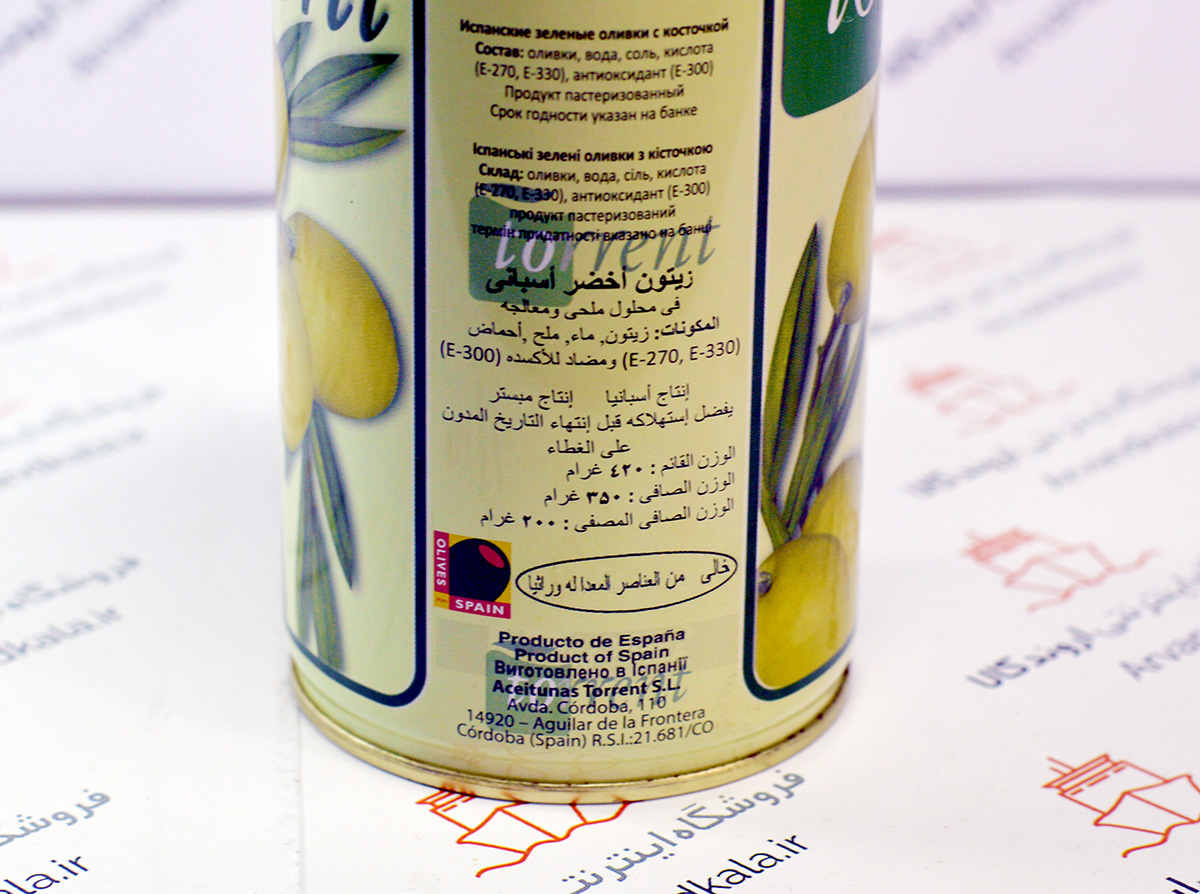 Испанские зеленые оливки с косточкой
Состав: оливки, вода, соль, кислота
(Е-270, Е-330), антиоксидант (Е-300)
Продукт пастеризованный
Срок годности указан на банке
Іспанські зелені оливки з кісточкою
Склад: оливки, вода, сіль, кислота
(Е-270, Е-330), антиоксидант (Е-300)
продукт пастеризований
термін придатності вказано на банці
torrent
زيتون أخضر أسبانى
فى محلول ملحى ومعالجه
المكونات: زيتون, ماء, ملح ,أحماض
(E-270, E-330) ومضاد للأكسده (E-300)
إنتاج أسبانيا إنتاج مبستر
يفضل إستهلاكه قبل إنتهاء التاريخ المدون
على الغطاء
الوزن القائم : ٤٢٠ غرام
الوزن الصافى : ٣٥٠ غرام
الوزن الصافى المصفى : ٢٠٠ غرام
OLIVES
SPAIN
خالى من العناصر المعدا له وراثيا
Producto de España
Product of Spain
Виготовлено в Іспанії
Aceitunas Torrent S.L.
torrent
Avda. Córdoba, 110
14920 – Aguilar de la Frontera
Córdoba (Spain) R.S.I.:21.681/CO
فروشگاه اینترنت
dkala.ir
فروشگ
dkala.ir
اینترنتی اروند کالا
Arva